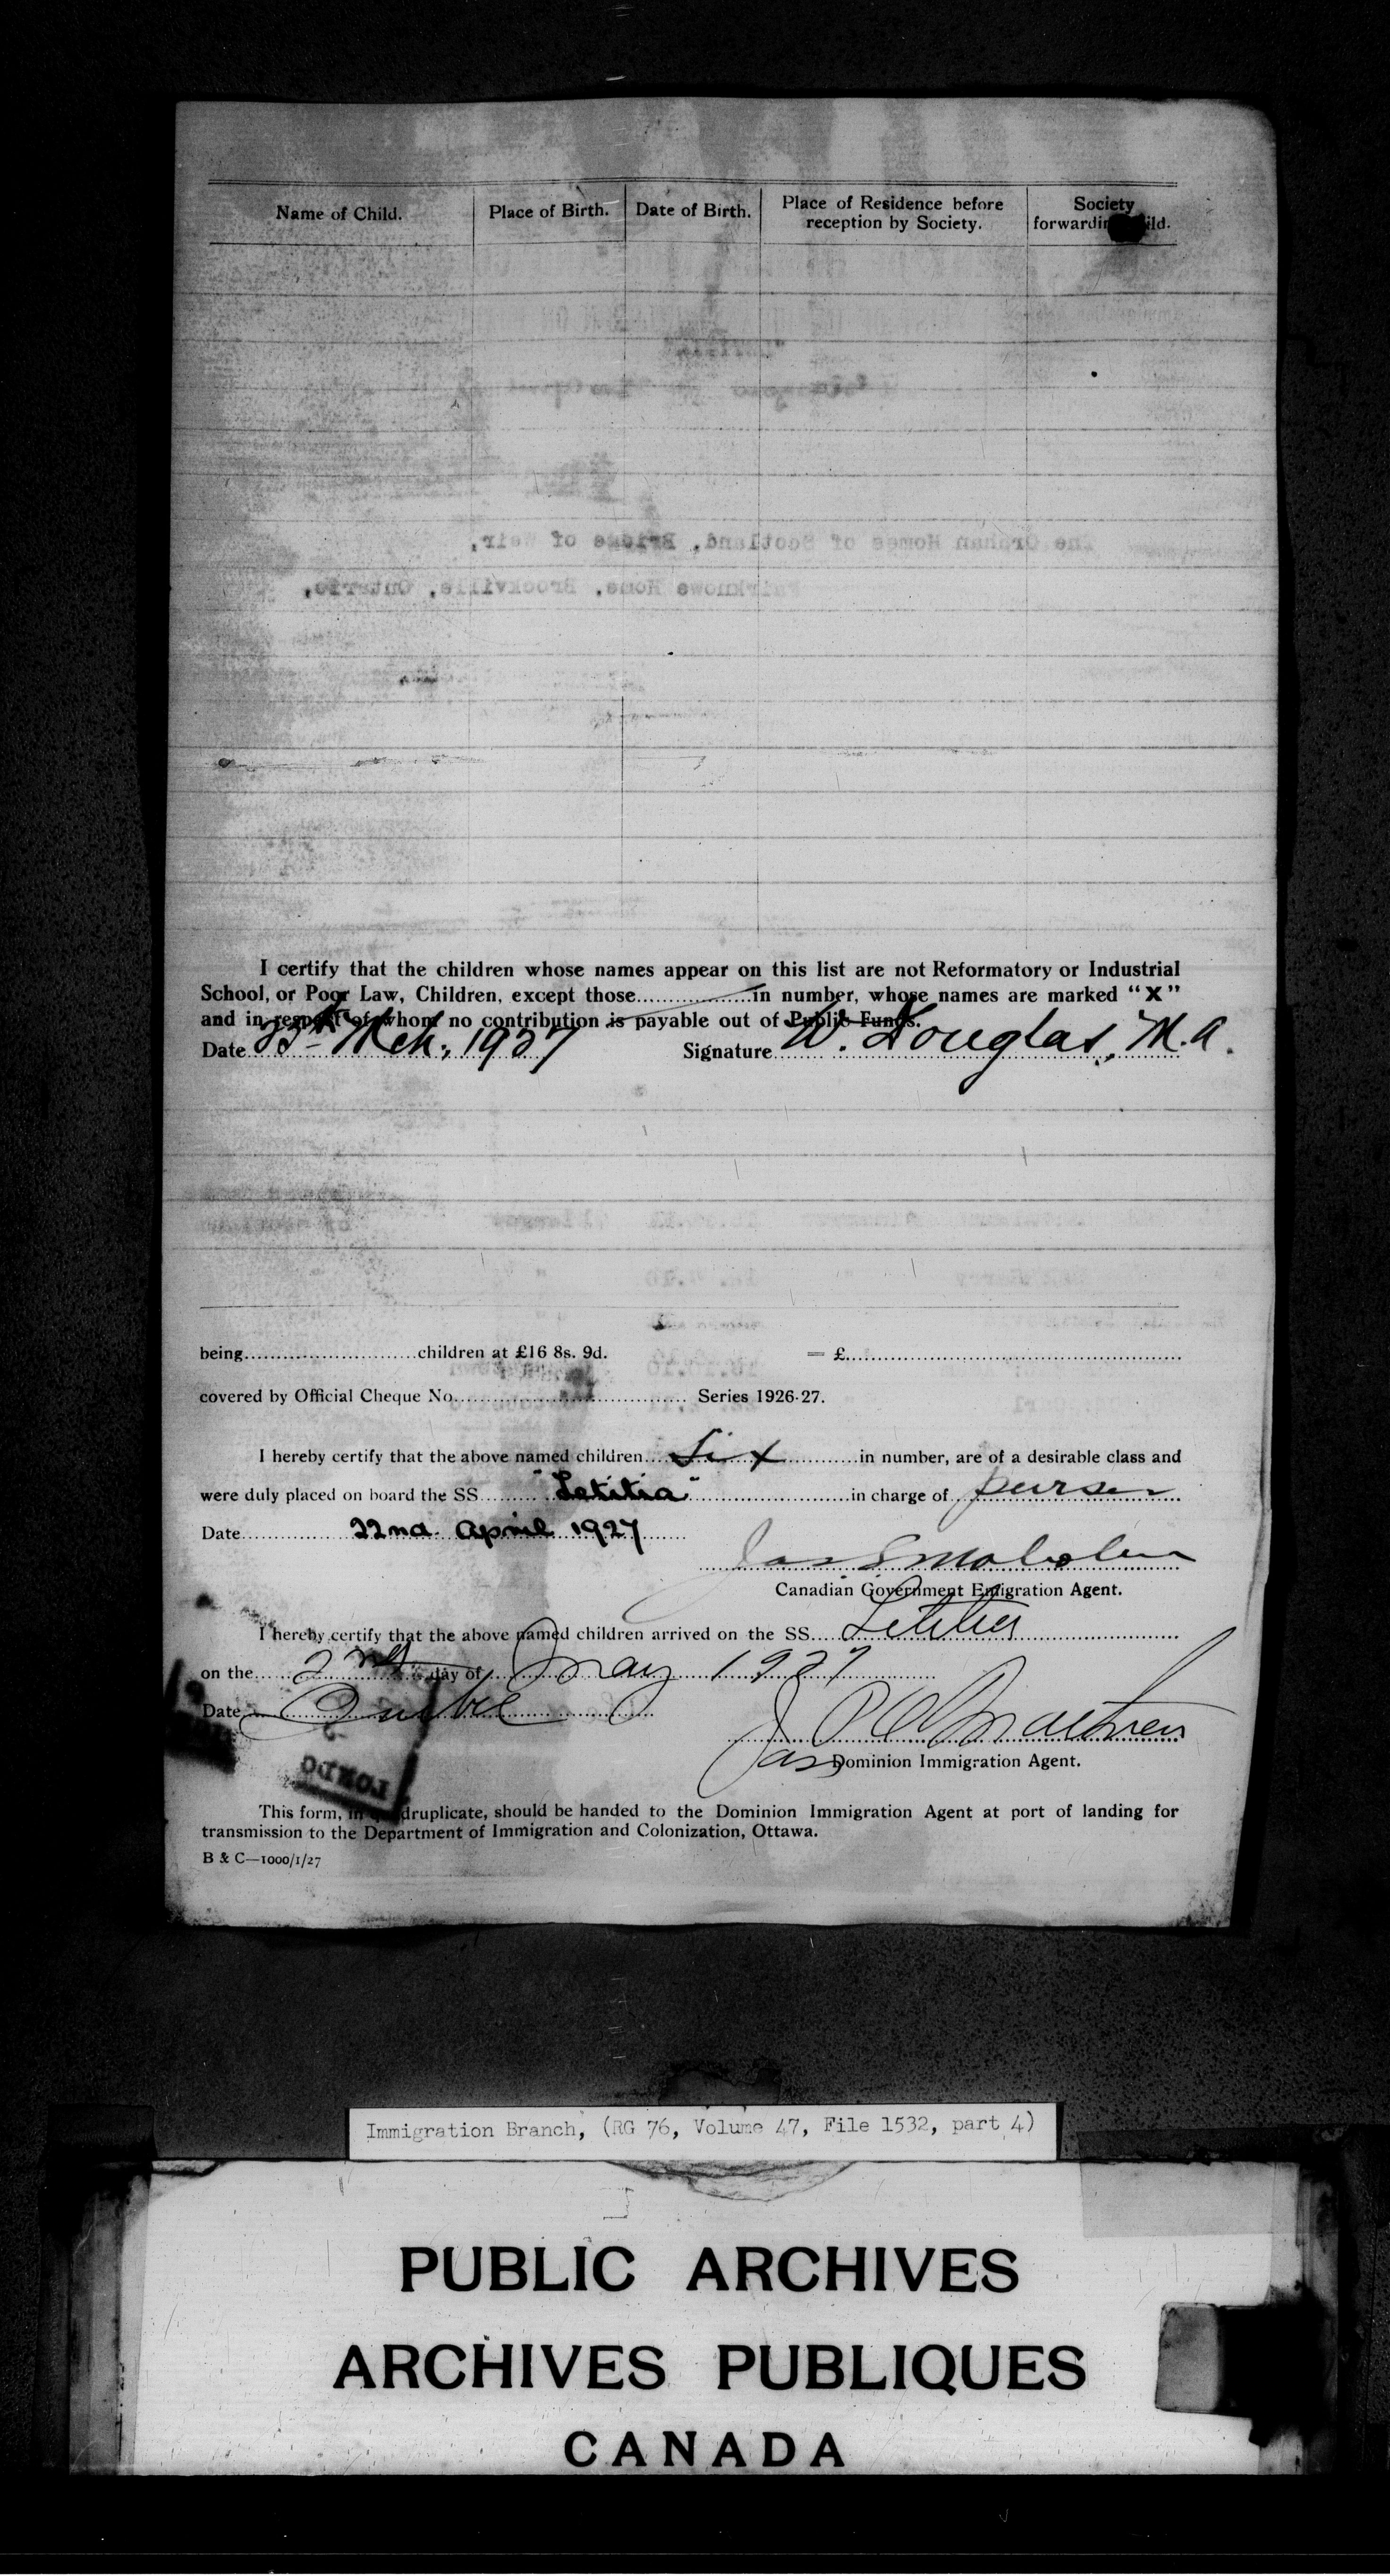 Name of Child. Place of Birth. Date of Birth. Place of Residence before reception by Society. Society forwarding Child.
I certify that the children whose names appear on this list are not Reformatory or Industrial
School, or Poor Law, Children, except those in number, whose names are marked “X”
and in respect of whom no contribution is payable out of Public Funds.
Date 25th Mch, 1927 Signature W. Douglas, M.A.
being children at £16 8s. 9d. = £
covered by Official Cheque No. Series 1926-27.
I hereby certify that the above named children Six in number, are of a desirable class and
were duly placed on board the SS "Letitia" in charge of purser
Date 22nd April 1927
Jas
Canadian Government Emigration Agent.
I hereby certify that the above named children arrived on the SS. Letitia
on the 2nd day of May 1927
Date Quebec
Jas
Dominion Immigration Agent.
This form, in quadruplicate, should be handed to the Dominion Immigration Agent at port of landing for
transmission to the Department of Immigration and Colonization, Ottawa.
B & C—1000/1/27
Immigration Branch, (RG 76, Volume 47, File 1532, part 4)
PUBLIC ARCHIVES
ARCHIVES PUBLIQUES
CANADA